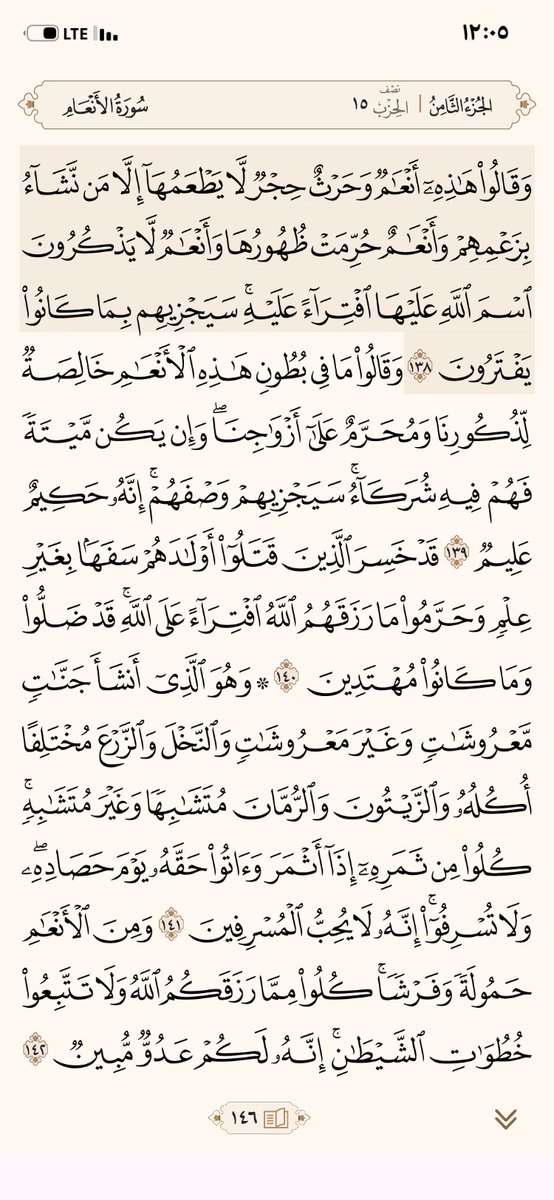 LTE ١٢:٠٥
الجُزْءُ الثَّامِنُ | نصف الحِزْب ١٥ سُورَةُ الأَنْعَامِ
وَقَالُوا۟ هَـٰذِهِۦٓ أَنْعَـٰمٌۭ وَحَرْثٌ حِجْرٌۭ لَّا يَطْعَمُهَآ إِلَّا مَن نَّشَآءُ
بِزَعْمِهِمْ وَأَنْعَـٰمٌ حُرِّمَتْ ظُهُورُهَا وَأَنْعَـٰمٌۭ لَّا يَذْكُرُونَ
ٱسْمَ ٱللَّهِ عَلَيْهَا ٱفْتِرَآءً عَلَيْهِ ۚ سَيَجْزِيهِم بِمَا كَانُوا۟
يَفْتَرُونَ ١٣٨ وَقَالُوا۟ مَا فِى بُطُونِ هَـٰذِهِ ٱلْأَنْعَـٰمِ خَالِصَةٌۭ
لِّذُكُورِنَا وَمُحَرَّمٌ عَلَىٰٓ أَزْوَٰجِنَا ۖ وَإِن يَكُن مَّيْتَةًۭ
فَهُمْ فِيهِ شُرَكَآءُ ۚ سَيَجْزِيهِمْ وَصْفَهُمْ ۚ إِنَّهُۥ حَكِيمٌ
عَلِيمٌۭ ١٣٩ قَدْ خَسِرَ ٱلَّذِينَ قَتَلُوٓا۟ أَوْلَـٰدَهُمْ سَفَهًۢا بِغَيْرِ
عِلْمٍۢ وَحَرَّمُوا۟ مَا رَزَقَهُمُ ٱللَّهُ ٱفْتِرَآءً عَلَى ٱللَّهِ ۚ قَدْ ضَلُّوا۟
وَمَا كَانُوا۟ مُهْتَدِينَ ١٤٠ ۞ وَهُوَ ٱلَّذِىٓ أَنشَأَ جَنَّـٰتٍۢ
مَّعْرُوشَـٰتٍۢ وَغَيْرَ مَعْرُوشَـٰتٍۢ وَٱلنَّخْلَ وَٱلزَّرْعَ مُخْتَلِفًا
أُكُلُهُۥ وَٱلزَّيْتُونَ وَٱلرُّمَّانَ مُتَشَـٰبِهًۭا وَغَيْرَ مُتَشَـٰبِهٍۢ ۚ
كُلُوا۟ مِن ثَمَرِهِۦٓ إِذَآ أَثْمَرَ وَءَاتُوا۟ حَقَّهُۥ يَوْمَ حَصَادِهِۦ ۖ
وَلَا تُسْرِفُوٓا۟ ۚ إِنَّهُۥ لَا يُحِبُّ ٱلْمُسْرِفِينَ ١٤١ وَمِنَ ٱلْأَنْعَـٰمِ
حَمُولَةًۭ وَفَرْشًۭا ۚ كُلُوا۟ مِمَّا رَزَقَكُمُ ٱللَّهُ وَلَا تَتَّبِعُوا۟
خُطُوَٰتِ ٱلشَّيْطَـٰنِ ۚ إِنَّهُۥ لَكُمْ عَدُوٌّۭ مُّبِينٌۭ ١٤٢
١٤٦